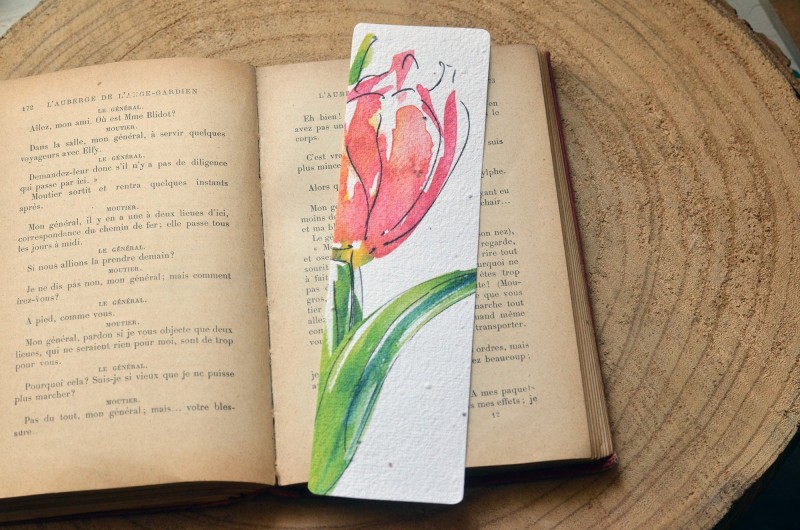 472 L'AUBERGE DE L'ANGE-GARDIEN
LE GÉNÉRAL.
Allez, mon ami. Où est Mme Blidot?
MOUTIER.
Dans la salle, mon général, à servir quelques
voyageurs avec Elfy.
LE GÉNÉRAL.
Demandez-leur donc s'il n'y a pas de diligence
qui passe par ici. »
Moutier sortit et rentra quelques instants
après.
MOUTIER.
Mon général, il y en a une à deux lieues d'ici,
correspondance du chemin de fer; elle passe tous
les jours à midi.
LE GÉNÉRAL.
Si nous allions la prendre demain?
MOUTIER.
Je ne dis pas non, mon général; mais comment
irez-vous?
LE GÉNÉRAL.
A pied, comme vous.
MOUTIER.
Mon général, pardon si je vous objecte que deux
lieues, qui ne seraient rien pour moi, sont de trop
pour vous.
LE GÉNÉRAL.
Pourquoi cela? Suis-je si vieux que je ne puisse
plus marcher?
MOUTIER.
Pas du tout, mon général; mais... votre bles-
sure.
L'AUB
Eh bien!
avez pas un lo
corps.
C'est vra
plus mince
Alors q
moins de
et ma b
Le gé nez),
« M regarde,
et ose rire tout
sourit ourquoi ne
à fait êtes trop
pas d ute! (Mou-
gros, e que vous
tier marche tout
allez quand même
transporter.
ordres, mais
je ez beaucoup:
A mes paquets
s mes effets; je
12